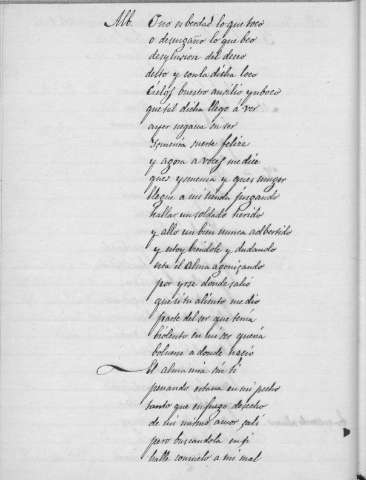 Alb. O no es berdad lo que toco
o desengaño lo que beo
desylusion del deseo
desto y con la dicha loco
Cielos buestro ausilio ynboco
que tal dicha llego á ver
ayer negaua su ser
Ysmenia suerte felize
y agora a voces me dice
ques ysmenia y ques muger
llegue a mi tienda juzgando
hallar un soldado herido
y allo un bien nunca adbertido
y estoy biendole y dudando
esta el alma agonizando
por yrse donde salio
que si tu aliento me dio
parte del ser que tenia
biolento en mi ser queria
boluerse a donde nacio
El alma mia sin ti
penando estaua en mi pecho
tanto que en fuego desecho
de mi mismo amor sali
pero buscandola en ti
halle consuelo a mi mal